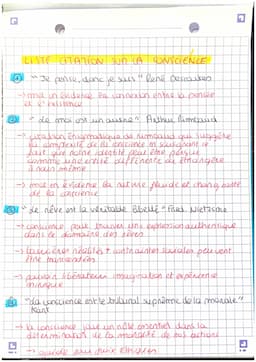 LISTE CITATION SUR LA CONSCIENCE
"Je pense, donc je suis" René Descartes
→ met en évidence la connexion entre la pensée
et l'existence
"Je moi est un autre" Arthur Rimbaud
→ citation énigmatique de Rimbaud qui suggère
la complexité de la conscience en soulignant le
fait que notre identité peut être perçue
comme une entité différente ou étrangère
à nous même
→ met en évidence la nature fluide et changeante
de la conscience
"Le rêve est la véritable liberté" Fred. Nietzsche
→ conscience peut trouver une expression authentique
dans le domaine des rêves
→ réalités + contraintes sociales peuvent
être transcendées
→ pouvoir libérateur imagination et expérience
onirique
"La conscience est le tribunal suprême de la morale"
Kant
→ la conscience joue un rôle essentiel dans la
détermination de la moralité de nos actions
→ guide nos choix éthiques